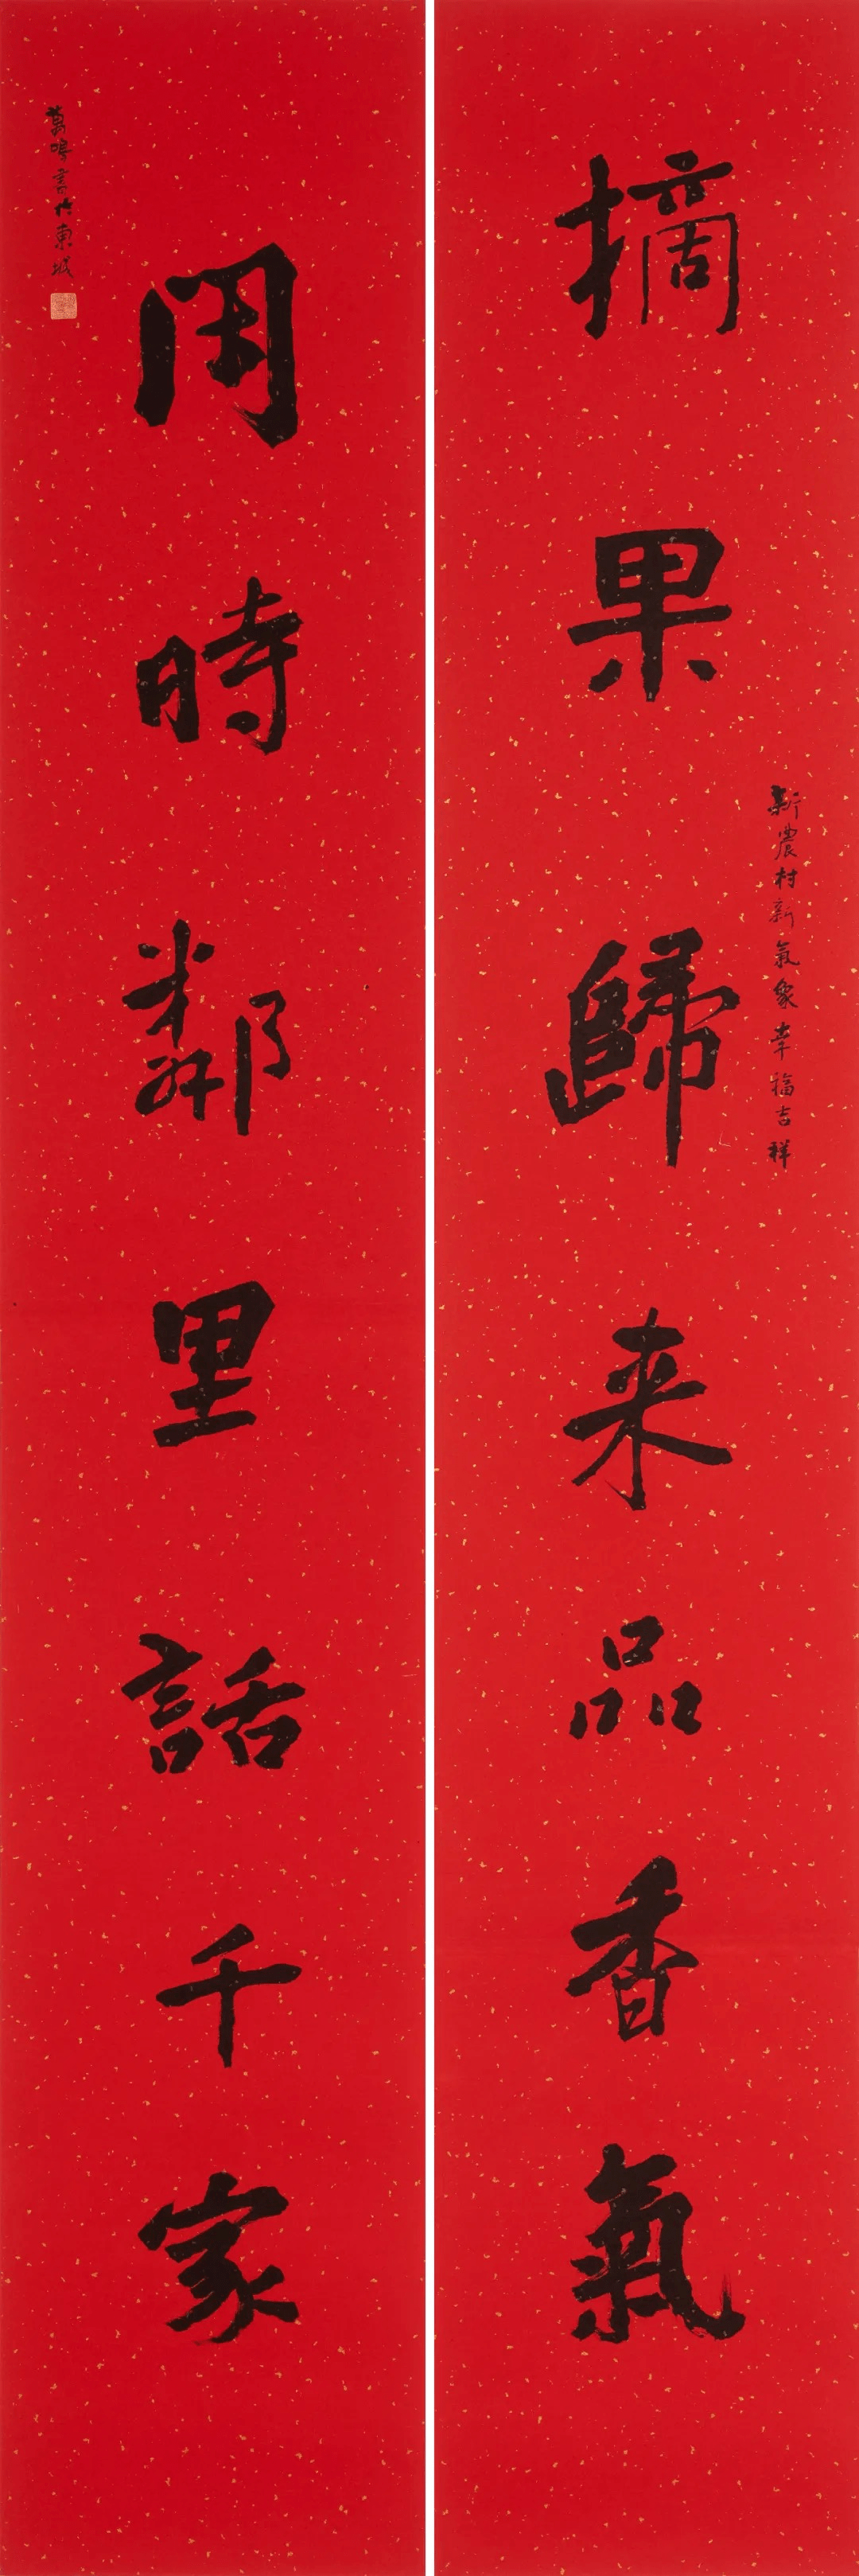 摘果歸来品香氣
新農村新氣象幸福吉祥
閑時鄰里話千家
萬鳴書於東城